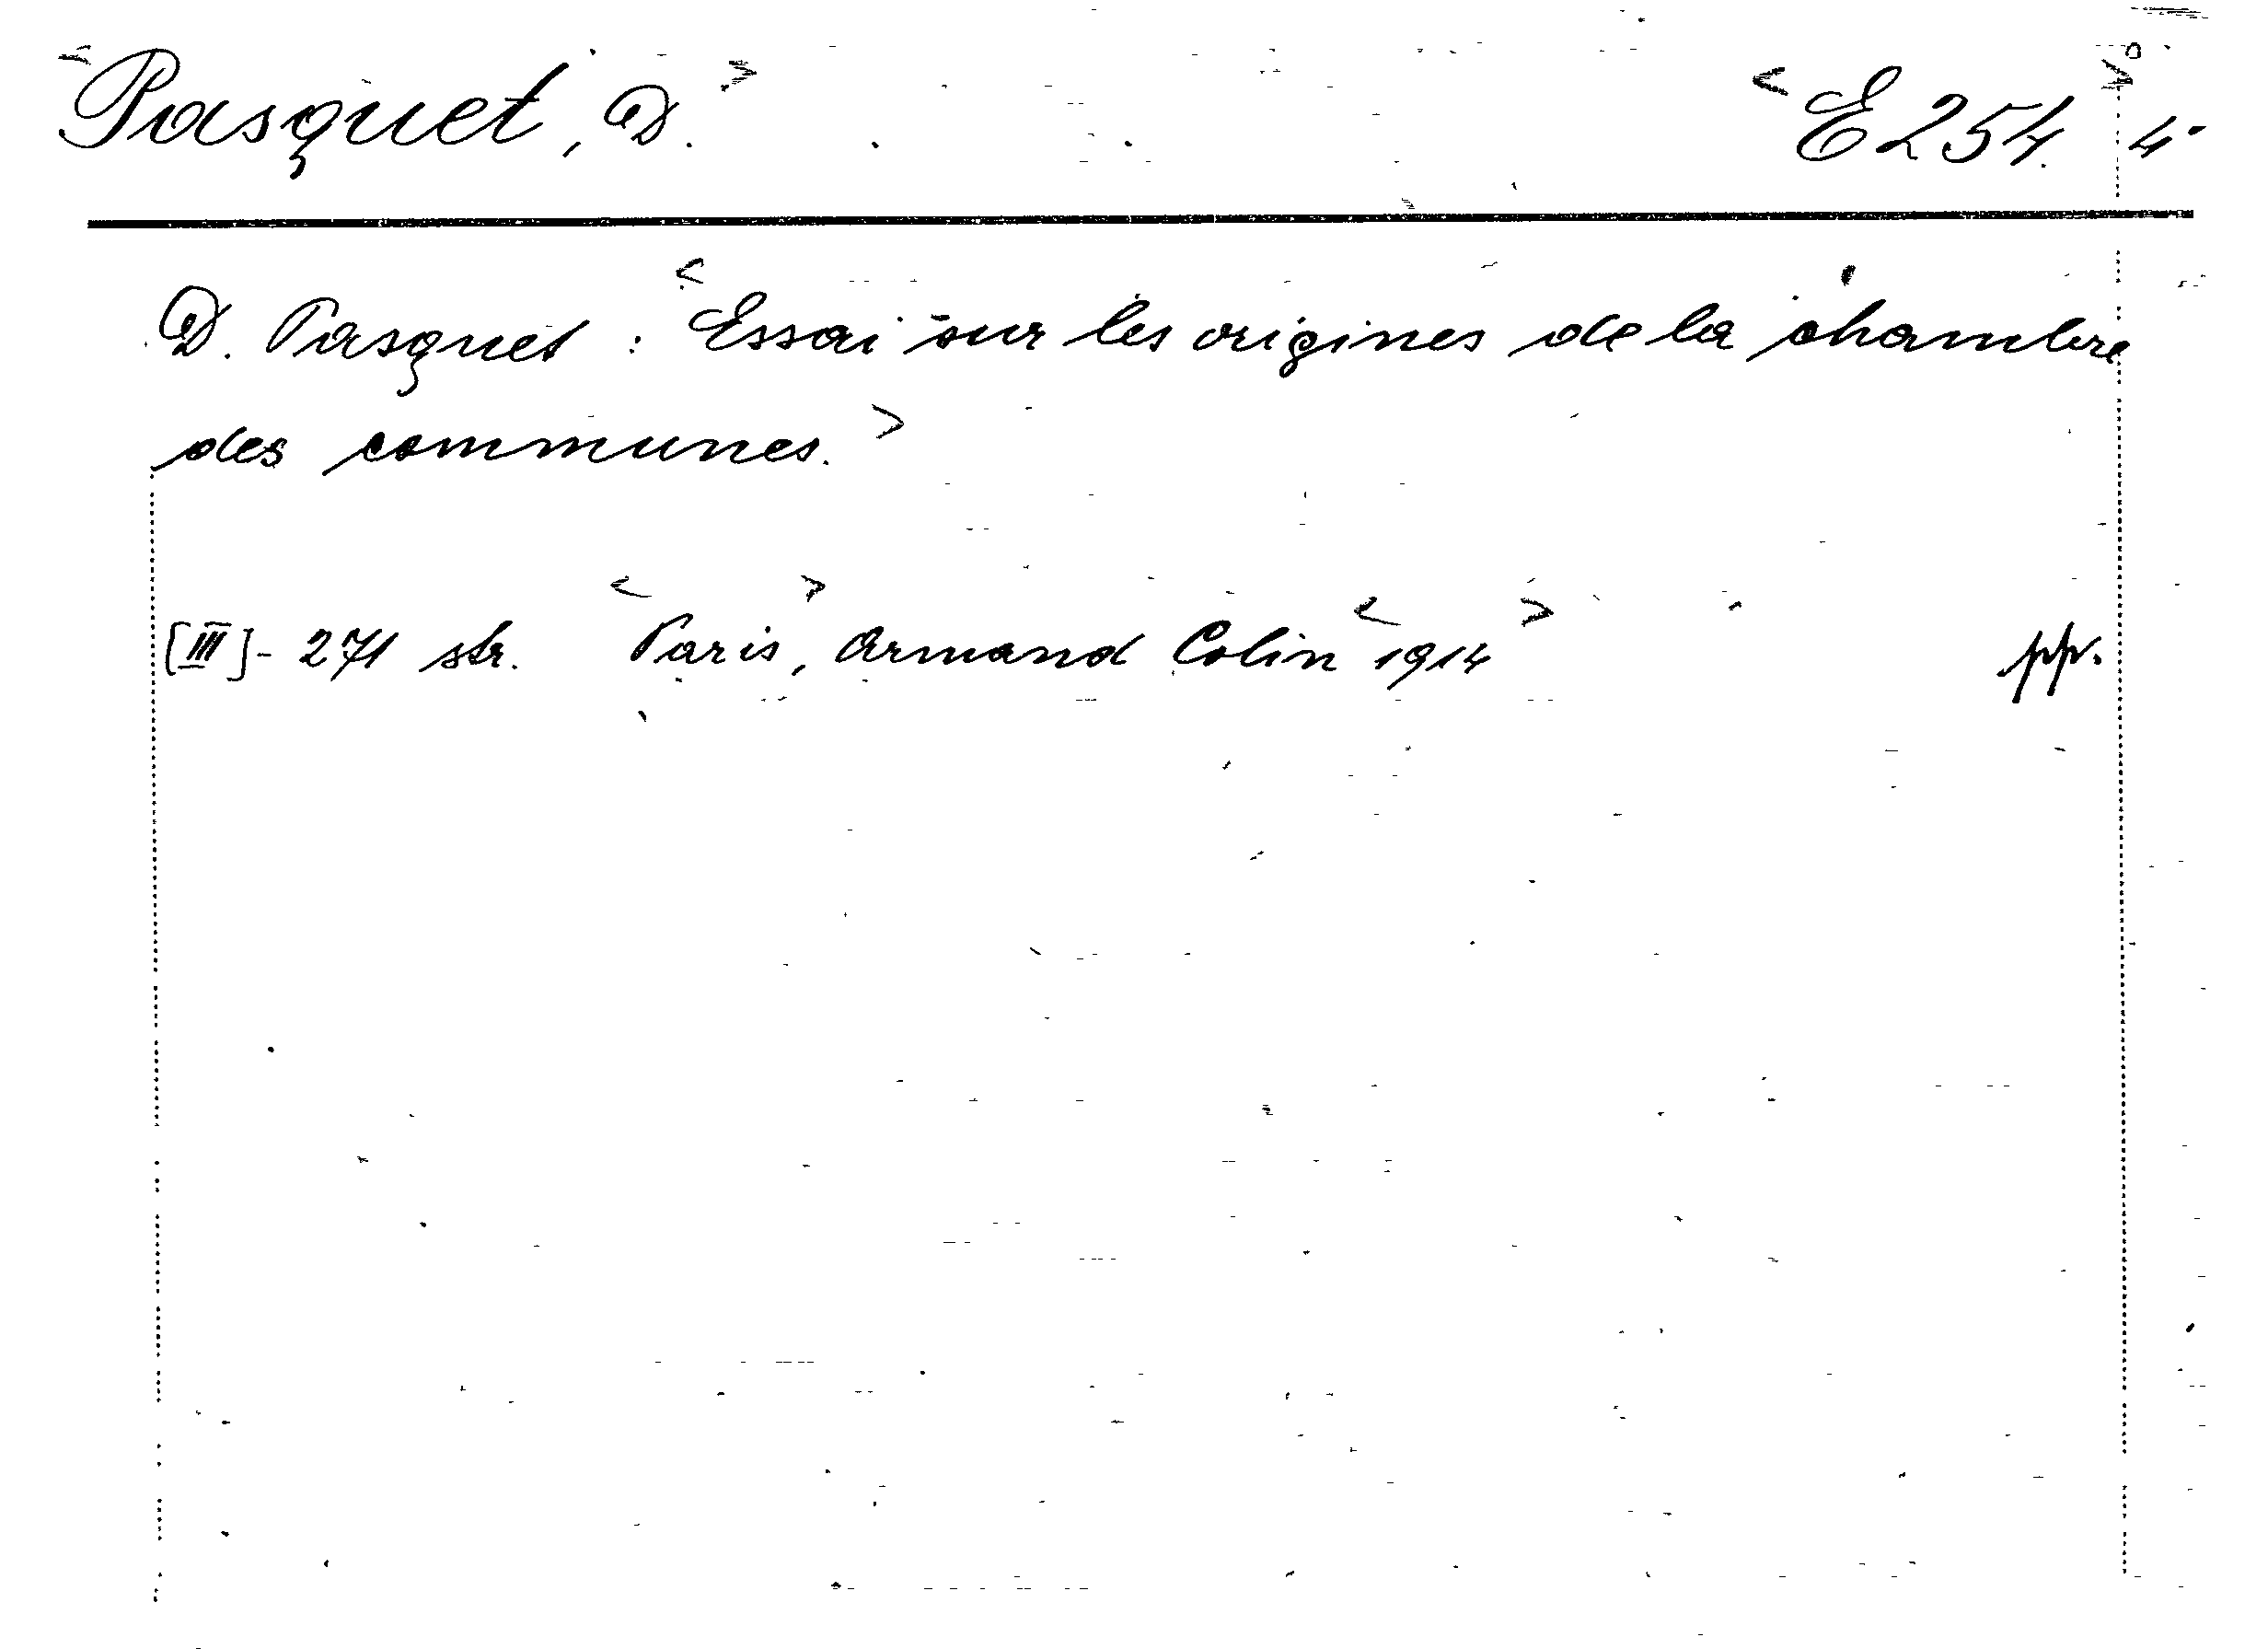 <Pasquet, D.> <E 254.> 4°
D. Pasquet : <Essai sur les origines de la chambre
des communes.>
[III]- 271 str. <Paris>, Armand Colin <1914> pp.